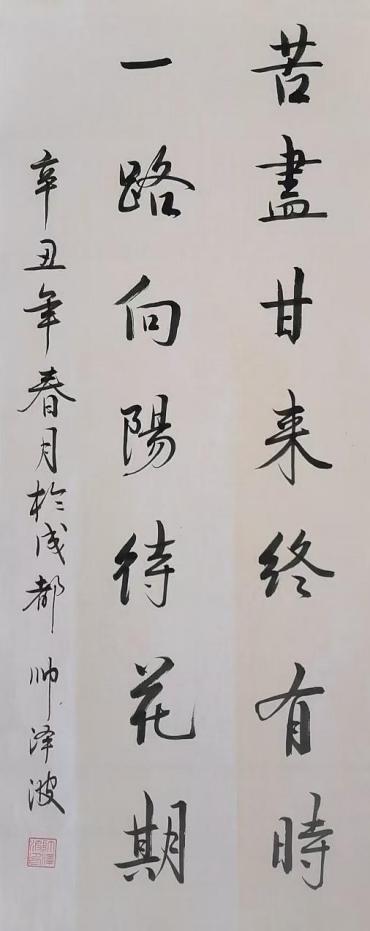 苦盡甘来终有時
一路向陽待花期
辛丑年春月於成都 帅泽波